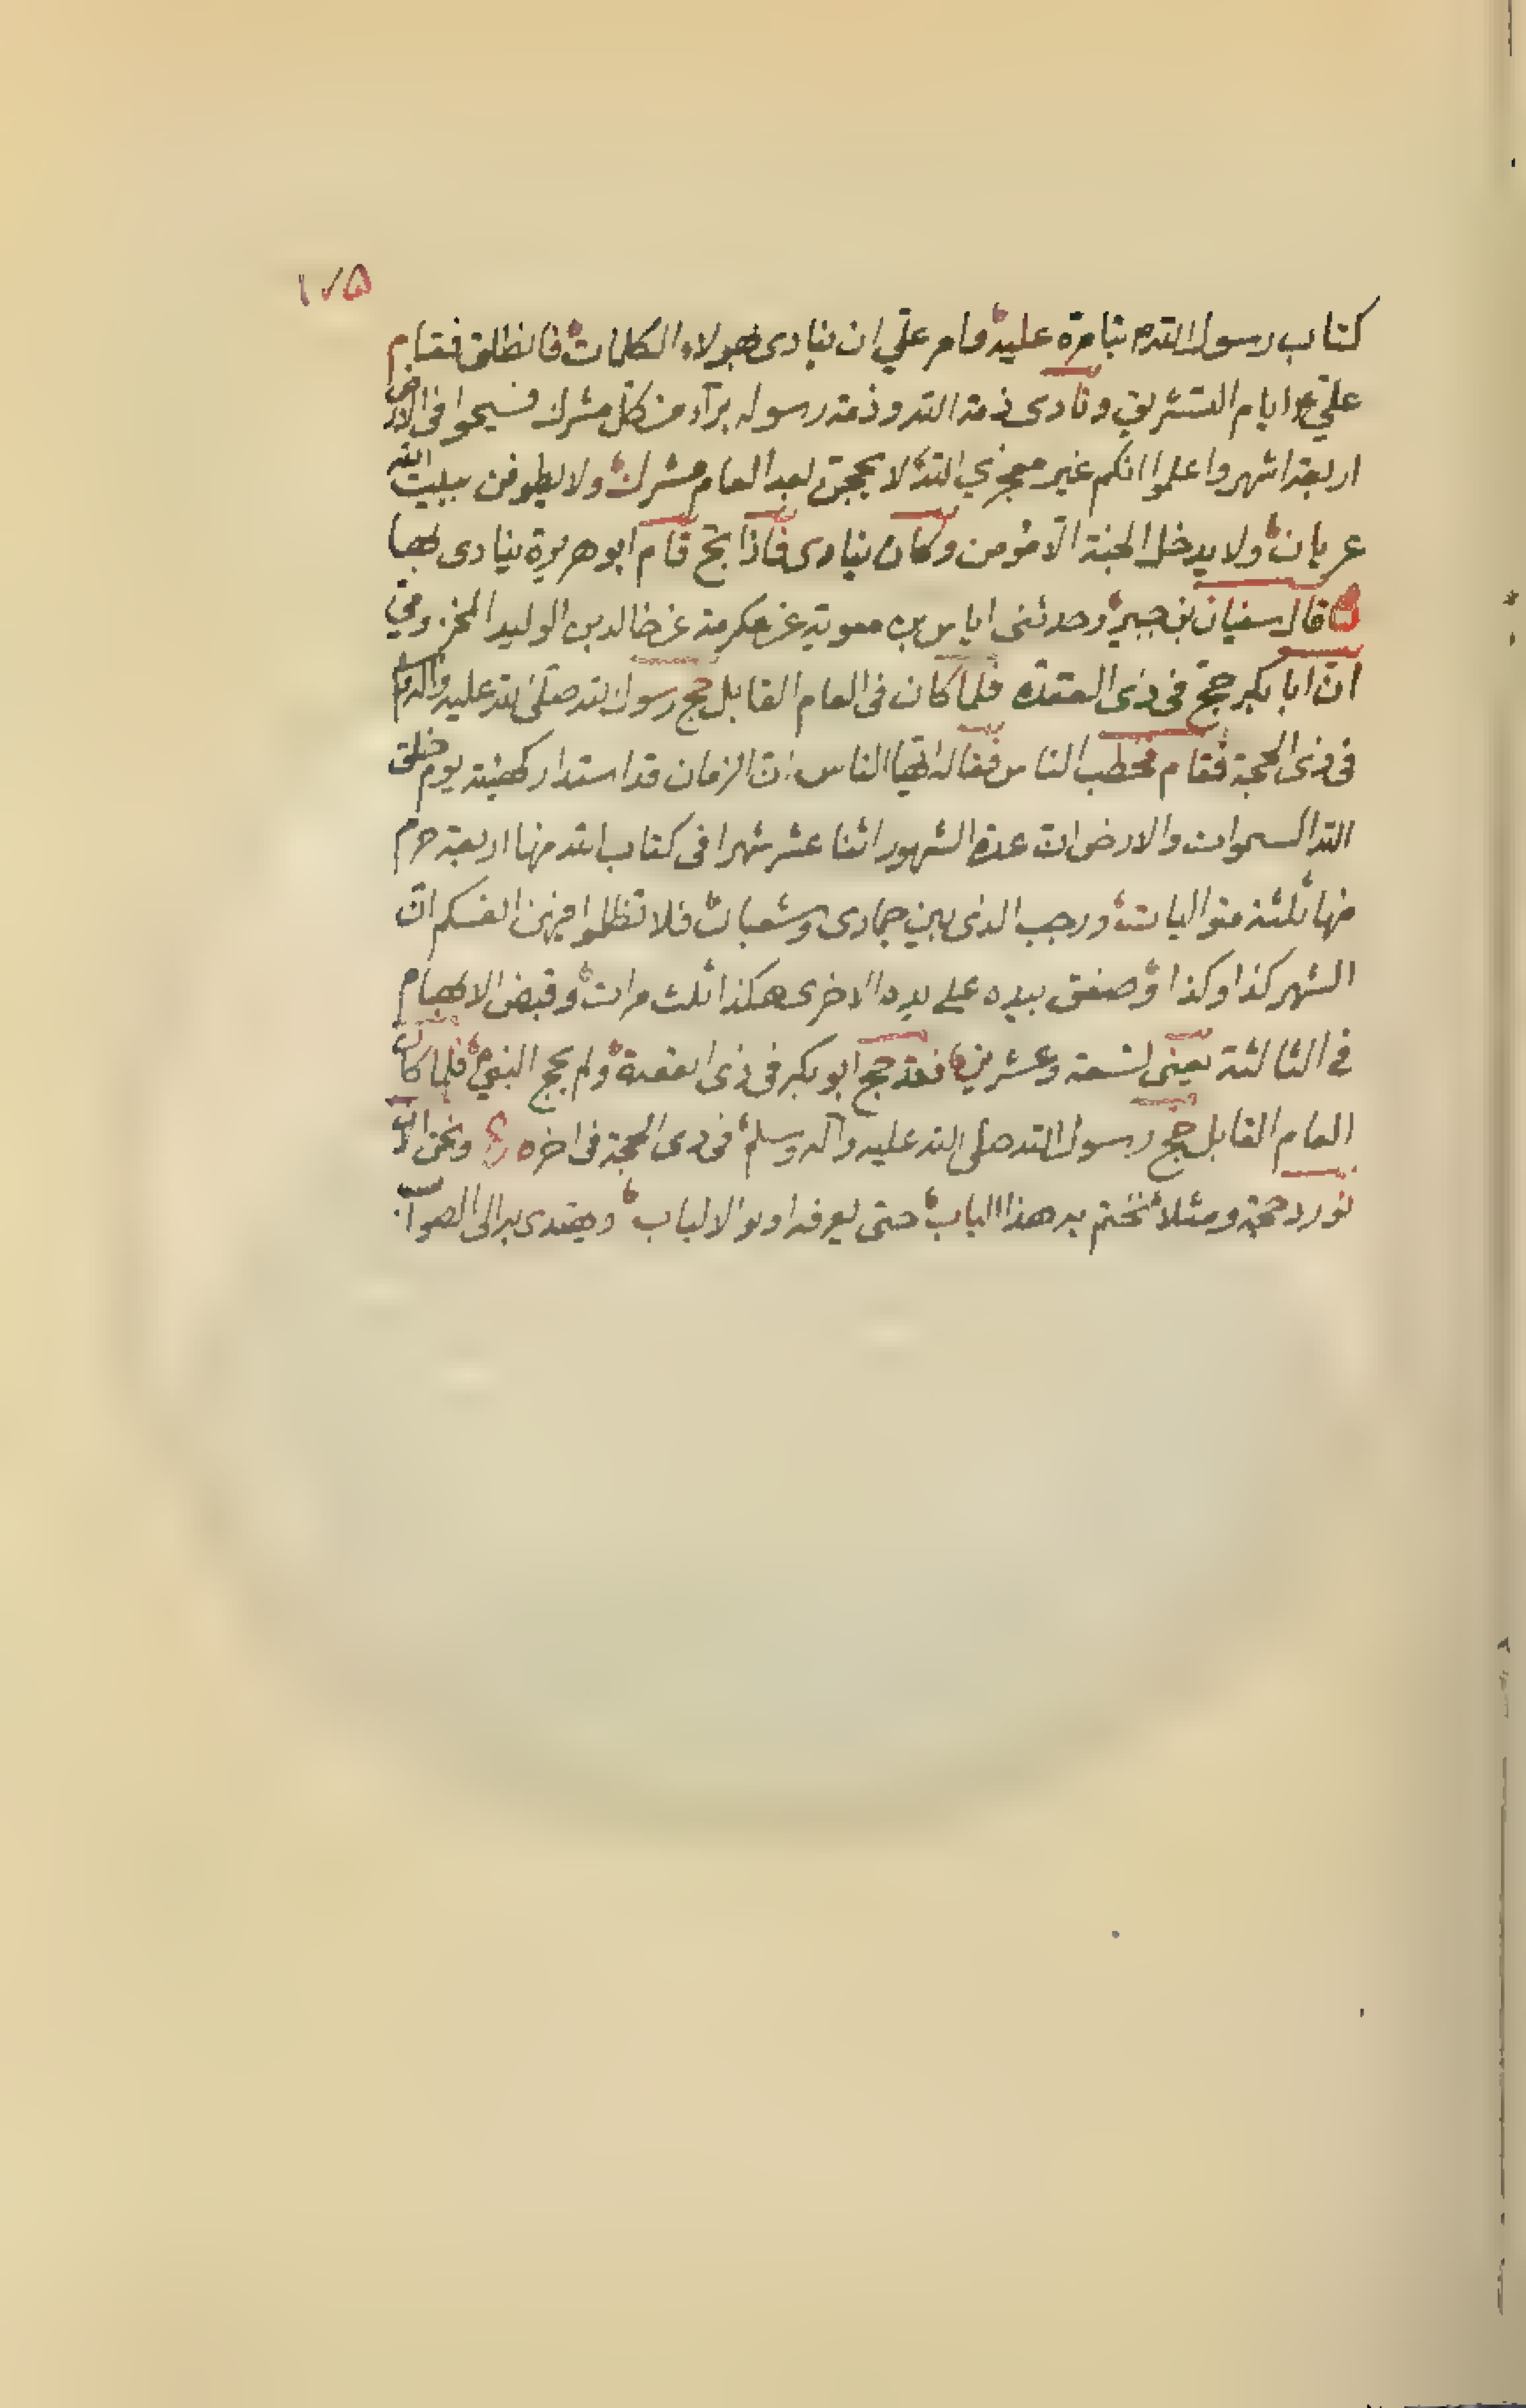 ١٧٥
كتاب رسول الله م بتامره عليه وامر علي ان ينادى بهولاء الكلمات فانطلق فقام
علي ع ايام التشريق ونادى ذمة الله وذمة رسوله برآء من كل مشرك فسيحوا فى الارض
اربعة اشهر واعلموا انكم غير معجزي الله لا يحجن بعد العام مشرك ولا يطوفن ببيت الله
عريان ولا يدخل الجنة الا مؤمن وكان ينادى فاذا بح قام ابو هريرة ينادى بها
قال سفيان بن جبير وحدثنى اياس بن معوية عن عكرمة عن خالد بن الوليد المخزومي
ان ابا بكر حج فى ذى القعده فلما كان فى العام القابل حج رسول الله صلى الله عليه وآله وسلم
فى ذى الحجة فقام فخطب الناس فقال ايها الناس ان الزمان قد استدار كهيئته يوم خلق
الله السموات والارض ان عدة الشهور اثنا عشر شهرا فى كتاب الله منها اربعة حرم
منها ثلثة متواليات ورجب الذى بين جمادى وشعبان فلا تظلموا فيهن انفسكم ان
الشهر كذا وكذا وصفق بيده على يده الاخرى هكذا ثلث مرات وقبض الابهام
فى الثالثة يعنى تسعة وعشرين فقد حج ابو بكر فى ذى القعدة ولم يحج النبي فلما كان
العام القابل حج رسول الله صلى الله عليه وآله وسلم فى ذى الحجة فى اخره ونحن الان
نورد حجة ومثلا نختم به هذا الباب حتى يعرفه اولو الالباب ويهتدى به الى الصواب